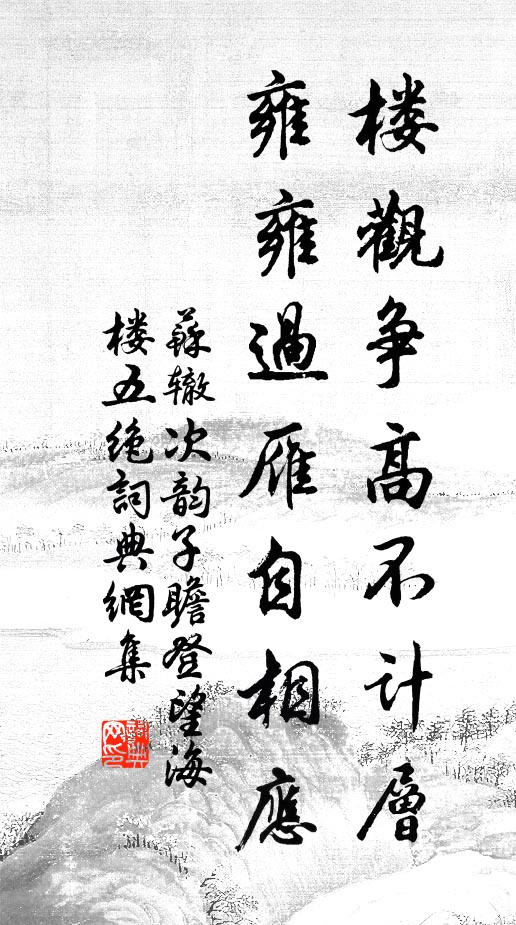 楼觀争高不计層
雍雍過雁自相應
蘇辙次韵子瞻登望海
楼五绝詞典網集